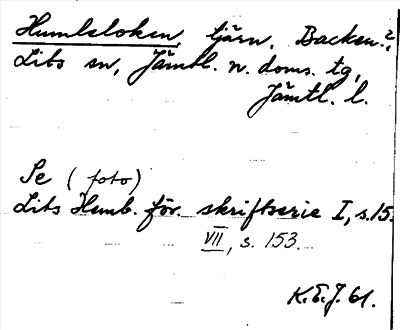 Humlsloken, tjärn, Backen?,
Lits sn, Jämtl. n. doms. tg,
Jämtl. l.
Se (foto)
Lits Hemb. för. skriftserie I, s. 15.
VII, s. 153.
K.E.J. 61.